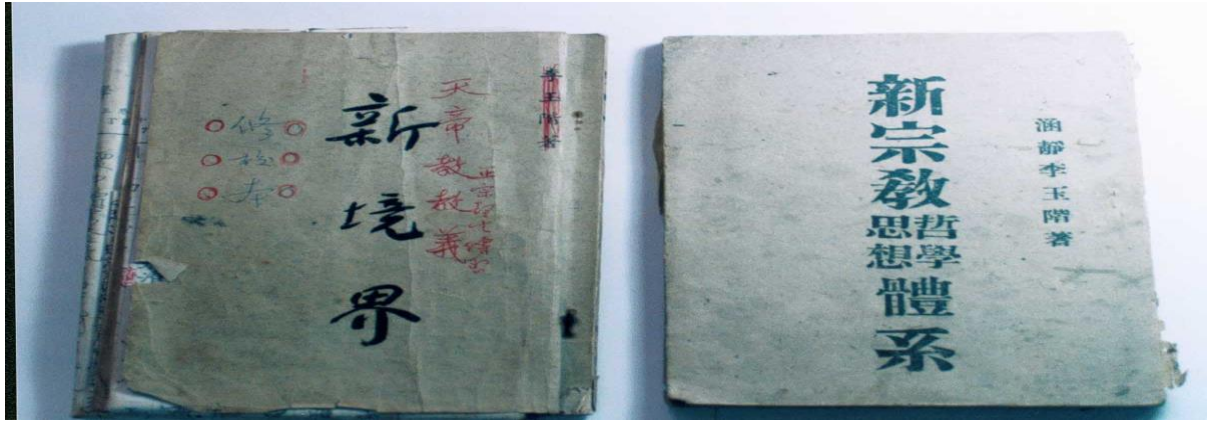 李玉階著
天帝教教義
新境界
涵靜李玉階著
新宗教哲學思想體系